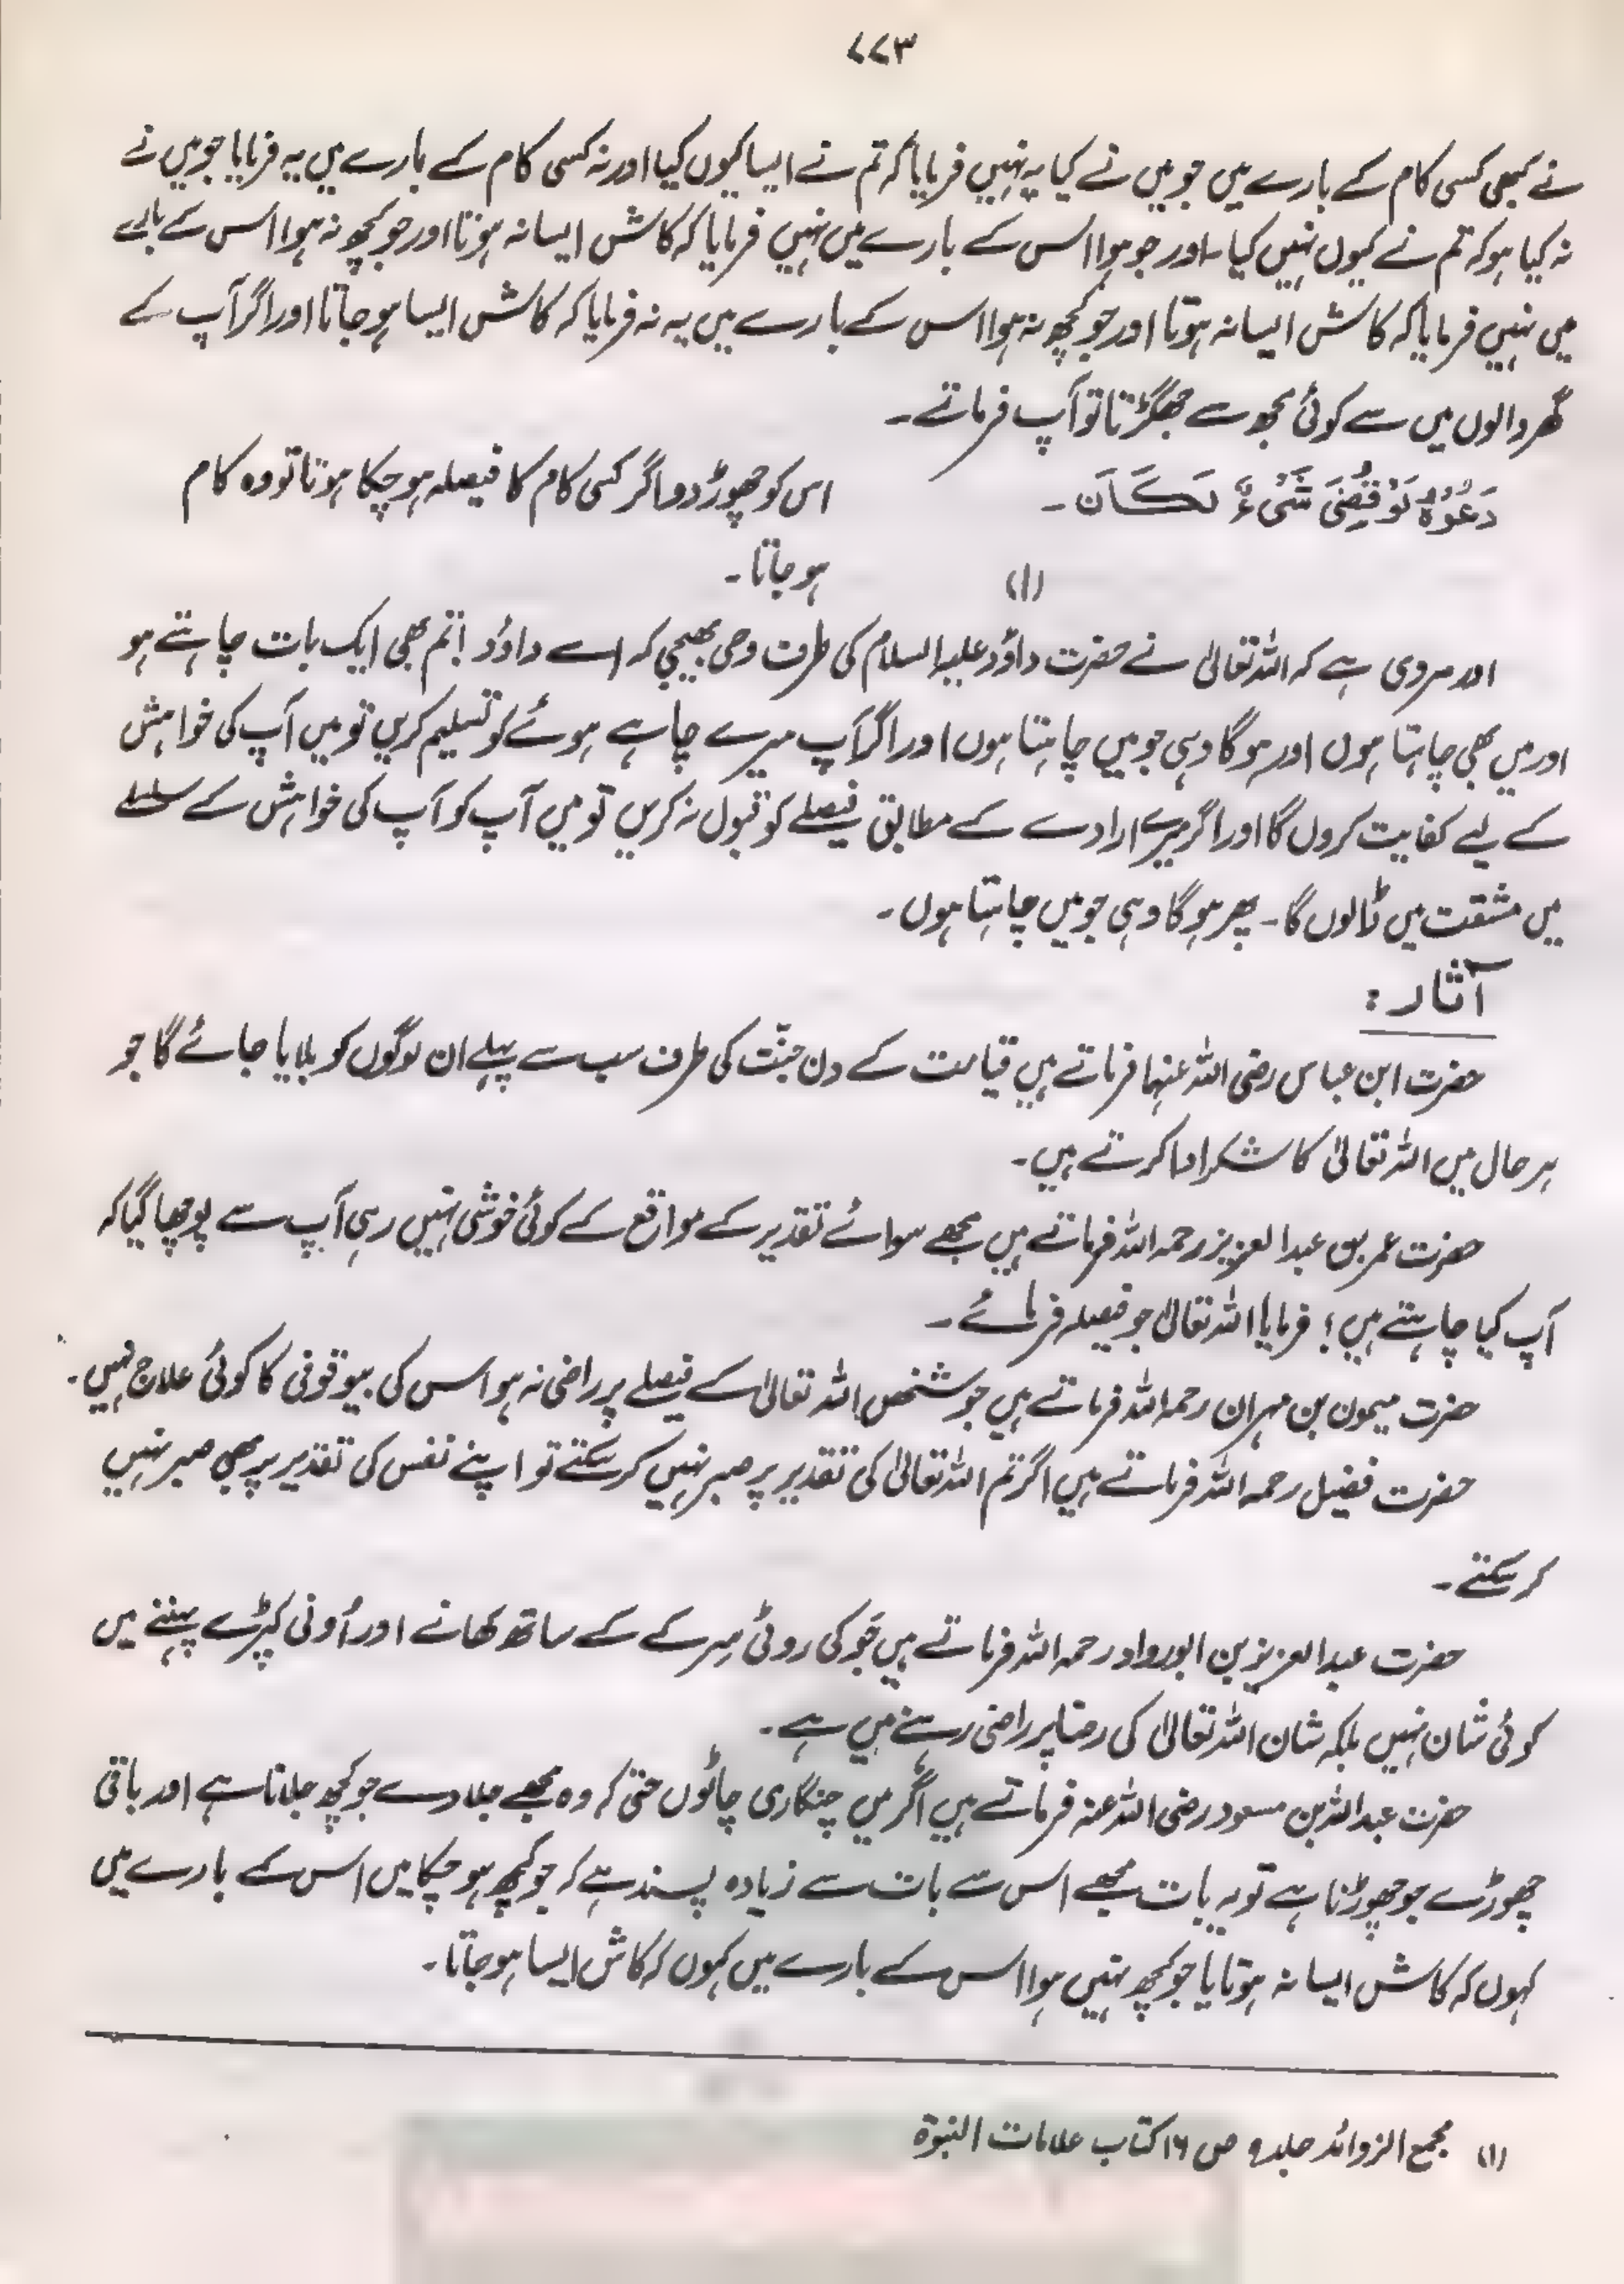 ۷۷۳
نے کبھی کسی کام کے بارے میں جو میں نے کیا یہ نہیں فرمایا کہ تم نے ایسا کیوں کیا اور نہ کسی کام کے بارے میں یہ فرمایا جو میں نے
نہ کیا ہو کہ تم نے کیوں نہیں کیا۔ اور جو ہوا اس کے بارے میں نہیں فرمایا کہ کاش ایسا نہ ہوتا اور جو کچھ نہ ہوا اس کے بارے
میں نہیں فرمایا کہ کاش ایسا نہ ہوتا اور جو کچھ نہ ہوا اس کے بارے میں یہ نہ فرمایا کہ کاش ایسا ہو جاتا اور اگر آپ کے
گھر والوں میں سے کوئی مجھ سے جھگڑتا تو آپ فرماتے۔
دَعُوْهُ لَوْ قُضِیَ شَیْءٌ لَكَانَ۔
اس کو چھوڑ دو اگر کسی کام کا فیصلہ ہو چکا ہوتا تو وہ کام
ہو جاتا۔
(۱)
اور مروی ہے کہ اللہ تعالیٰ نے حضرت داؤد علیہ السلام کی طرف وحی بھیجی کہ اے داؤد! تم بھی ایک بات چاہتے ہو
اور میں بھی چاہتا ہوں اور ہوگا وہی جو میں چاہتا ہوں اور اگر آپ میرے چاہے ہوئے کو تسلیم کریں تو میں آپ کی خواہش
کے لیے کفایت کروں گا اور اگر میرے ارادے کے مطابق فیصلے کو قبول نہ کریں تو میں آپ کو آپ کی خواہش کے سلسلے
میں مشقت میں ڈالوں گا۔ پھر ہو گا وہی جو میں چاہتا ہوں۔
آثار:
حضرت ابن عباس رضی اللہ عنہما فرماتے ہیں قیامت کے دن جنّت کی طرف سب سے پہلے ان لوگوں کو بلایا جائے گا جو
ہر حال میں اللہ تعالیٰ کا شکر ادا کرتے ہیں۔
حضرت عمر بن عبد العزیز رحمہ اللہ فرماتے ہیں مجھے سوائے تقدیر کے مواقع کے کوئی خوشی نہیں رہی آپ سے پوچھا گیا کہ
آپ کیا چاہتے ہیں؟ فرمایا اللہ تعالیٰ جو فیصلہ فرمائے۔
حضرت میمون بن مہران رحمہ اللہ فرماتے ہیں جو شخص اللہ تعالیٰ کے فیصلے پر راضی نہ ہو اس کی بیوقوفی کا کوئی علاج نہیں۔
حضرت فضیل رحمہ اللہ فرماتے ہیں اگر تم اللہ تعالیٰ کی تقدیر پر صبر نہیں کر سکتے تو اپنے نفس کی تقدیر پر بھی صبر نہیں
کر سکتے۔
حضرت عبدالعزیز بن ابورواد رحمہ اللہ فرماتے ہیں جَو کی روٹی سِرکے کے ساتھ کھانے اور اُونی کپڑے پہننے میں
کوئی شان نہیں بلکہ شان اللہ تعالیٰ کی رضا پر راضی رہنے میں ہے۔
حضرت عبداللہ بن مسعود رضی اللہ عنہ فرماتے ہیں اگر میں چنگاری چاٹوں حتیٰ کہ وہ مجھے جلا دے جو کچھ جلاتا ہے اور باقی
چھوڑے جو چھوڑنا ہے تو یہ بات مجھے اس سے بات سے زیادہ پسند ہے کہ جو کچھ ہو چکا میں اس کے بارے میں
کہوں کہ کاش ایسا نہ ہوتا یا جو کچھ نہیں ہوا اس کے بارے میں کہوں کہ کاش ایسا ہو جاتا۔
(۱) مجمع الزوائد جلد ۹ ص ۱۶ کتاب علامات النبوۃ